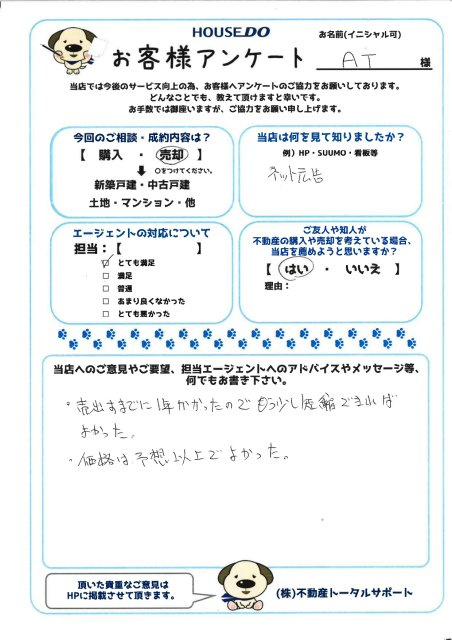 HOUSEDO
お客様アンケート
お名前(イニシャル可)
AT 様
当店では今後のサービス向上の為、お客様へアンケートのご協力をお願いしております。
どんなことでも、教えて頂けますと幸いです。
お手数では御座いますが、ご協力をお願い申し上げます。
今回のご相談・成約内容は?
【 購入 ・ 売却 】
○をつけてください。
新築戸建・中古戸建
土地・マンション・他
当店は何を見て知りましたか?
例)HP・SUUMO・看板等
ネット広告
エージェントの対応について
担当:【 】
☑ とても満足
□ 満足
□ 普通
□ あまり良くなかった
□ とても悪かった
ご友人や知人が
不動産の購入や売却を考えている場合、
当店を薦めようと思いますか?
【 はい ・ いいえ 】
理由:
当店へのご意見やご要望、担当エージェントへのアドバイスやメッセージ等、
何でもお書き下さい。
・売出すまでに1年かかったのでもう少し短縮できれば
よかった。
・価格は予想以上でよかった。
頂いた貴重なご意見は
HPに掲載させて頂きます。
(株)不動産トータルサポート